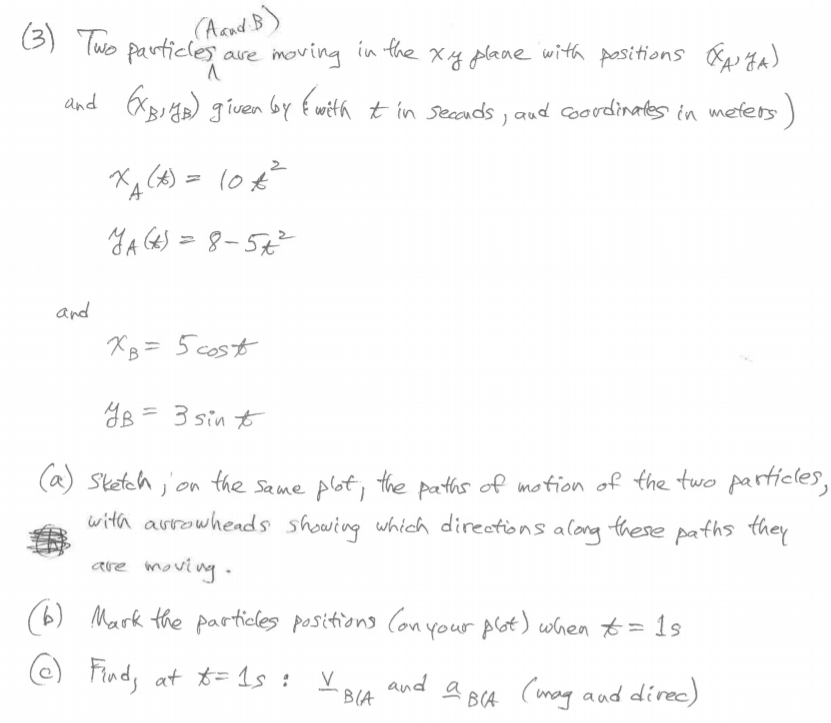 (A and B)
(3) Two particles are moving in the xy plane with positions (xA, yA)
and (xB, yB) given by (with t in seconds, and coordinates in meters)
xA(t) = 10t²
yA(t) = 8-5t²
and
xB = 5 cos t
yB = 3 sin t
(a) Sketch, on the same plot, the paths of motion of the two particles,
with arrowheads showing which directions along these paths they
are moving.
(b) Mark the particles positions (on your plot) when t = 1s
(c) Find, at t = 1s : v B/A and a B/A (mag and direc)